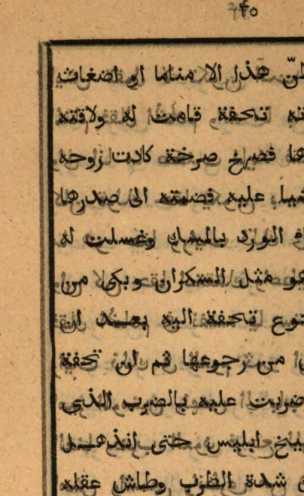 ٢٤٠
ظنّ هذا الا مناما او اضغاث
تحفة قامت له ولاقته
فصرخ صرخة كادت روحه
عليه فضمته الى صدرها
الورد بالمسك وغسلت له
مثل السكران وبكى من
تحفة اليه بعد ان
من رجوعها ثم ان تحفة
ضربت عليه بالضرب الذي
ابليس حتى اذهله
شدة الطرب وطاش عقله